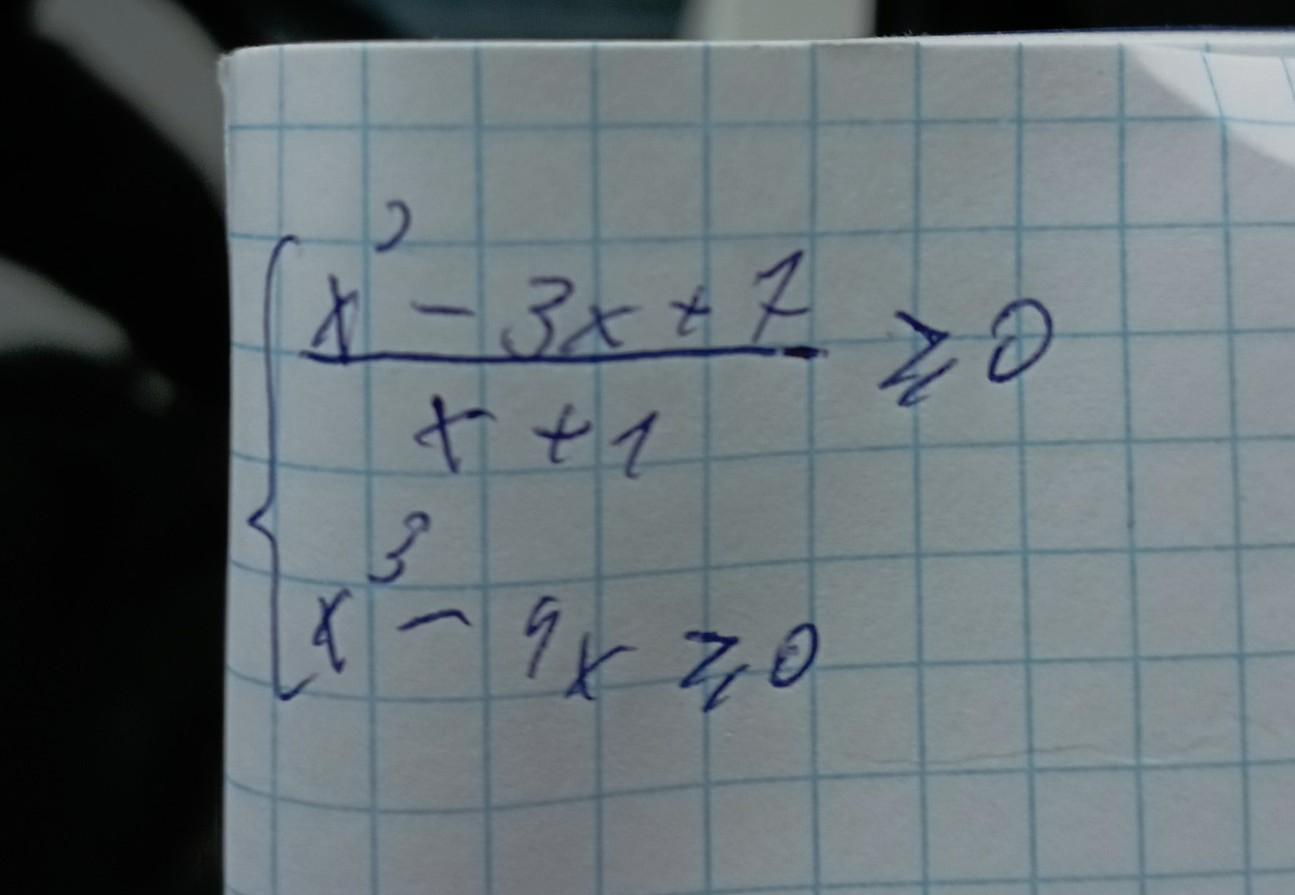 x² - 3x + 7
x + 1
≥ 0
x³ - 9x ≥ 0